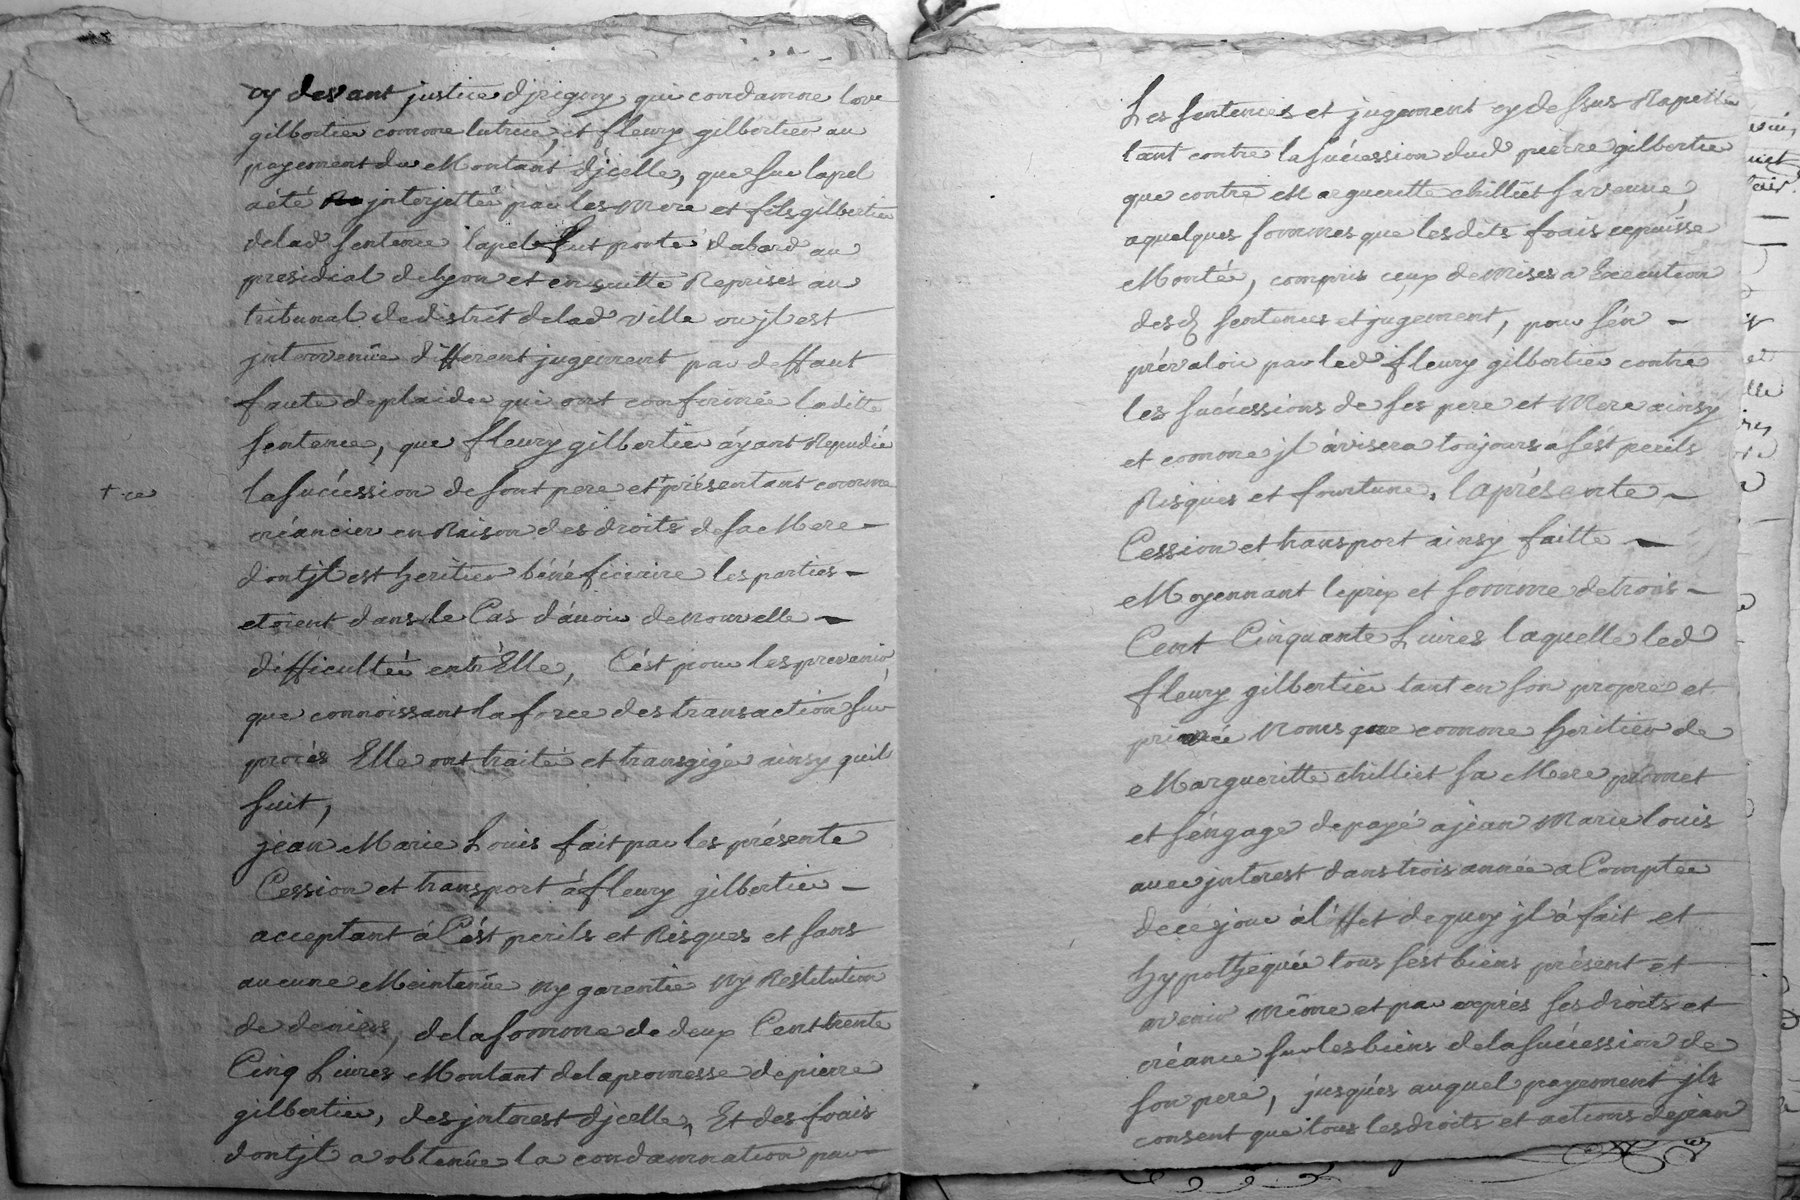 cy devant justice djrigny qui condamne lave
gilbertier comme tutrice, et fleury gilbertier au
payement du Montant d'jcelle, que sur lapel
a été jnterjettée par les Mere et fils gilbertier
delad sentence lapel fut porté dabord au
presidial de lyon et ensuitte Reprises au
tribunal de district delad ville ou jl est
jntervenüe different jugement par deffaut
faute deplaider qui ont confirmée laditte
sentence, que fleury gilbertier áyant Repudié
la succession de sont pere et + présentant comme
+ ce
créancier en Raison des droits de sa Mere –
dontjl est heritier bénéficiaire les parties –
etoient dans le Cas d'avoir de nouvelle –
difficultée entr'Elle, C'ést pour les prevenir,
que connoissant la force des transaction sur
procés Elle ont traité et transgigé ainsy quil
suit,
jean Marie Louis fait par les présente
Cession et transport á fleury gilbertier –
acceptant á Cést perils et Risques et sans
aucune Meintenüe ny garentie ny Restitution
de deniers, de la somme de deux Cent trente
Cinq Livres Montant de la promesse de pierre
gilbertier, des jnterest djcelle, Et des frais
dontjl a obtenüe la condamnation par –
Les sentences et jugement cy dessus Rapellé
tant contre la succession dud pierre gilbertier
que contre Margueritte chilliet sa veuve,
a quelques sommes que les dits frais cepuisse
Montée, compris ceux de mises a Execution
desd sentences et jugement, pour s'én –
prévaloir par led fleury gilbertier contre
les successions de ses pere et Mere ainsy
et comme jl ávisera toujours a sést perils
Risques et fourtune, la présente –
Cession et transport ainsy faitte –
Moyennant le prix et somme de trois –
Cent Cinquante Livres laquelle led
fleury gilbertier tant en son propre et
privée Noms que comme heritier de
Margueritte chilliet sa Mere promet
et s'éngage de payé a jean Marie louis
avec jnterest dans trois année a Compter
de ce jour á l'éffet de quoy jl á fait et
hypothequée tous sest biens présent et
avenir Même et par exprés ses droits et
créance sur les biens de la succession de
son pere, jusqu'és auquel payement jls
consent que tous les droits et actions de jean